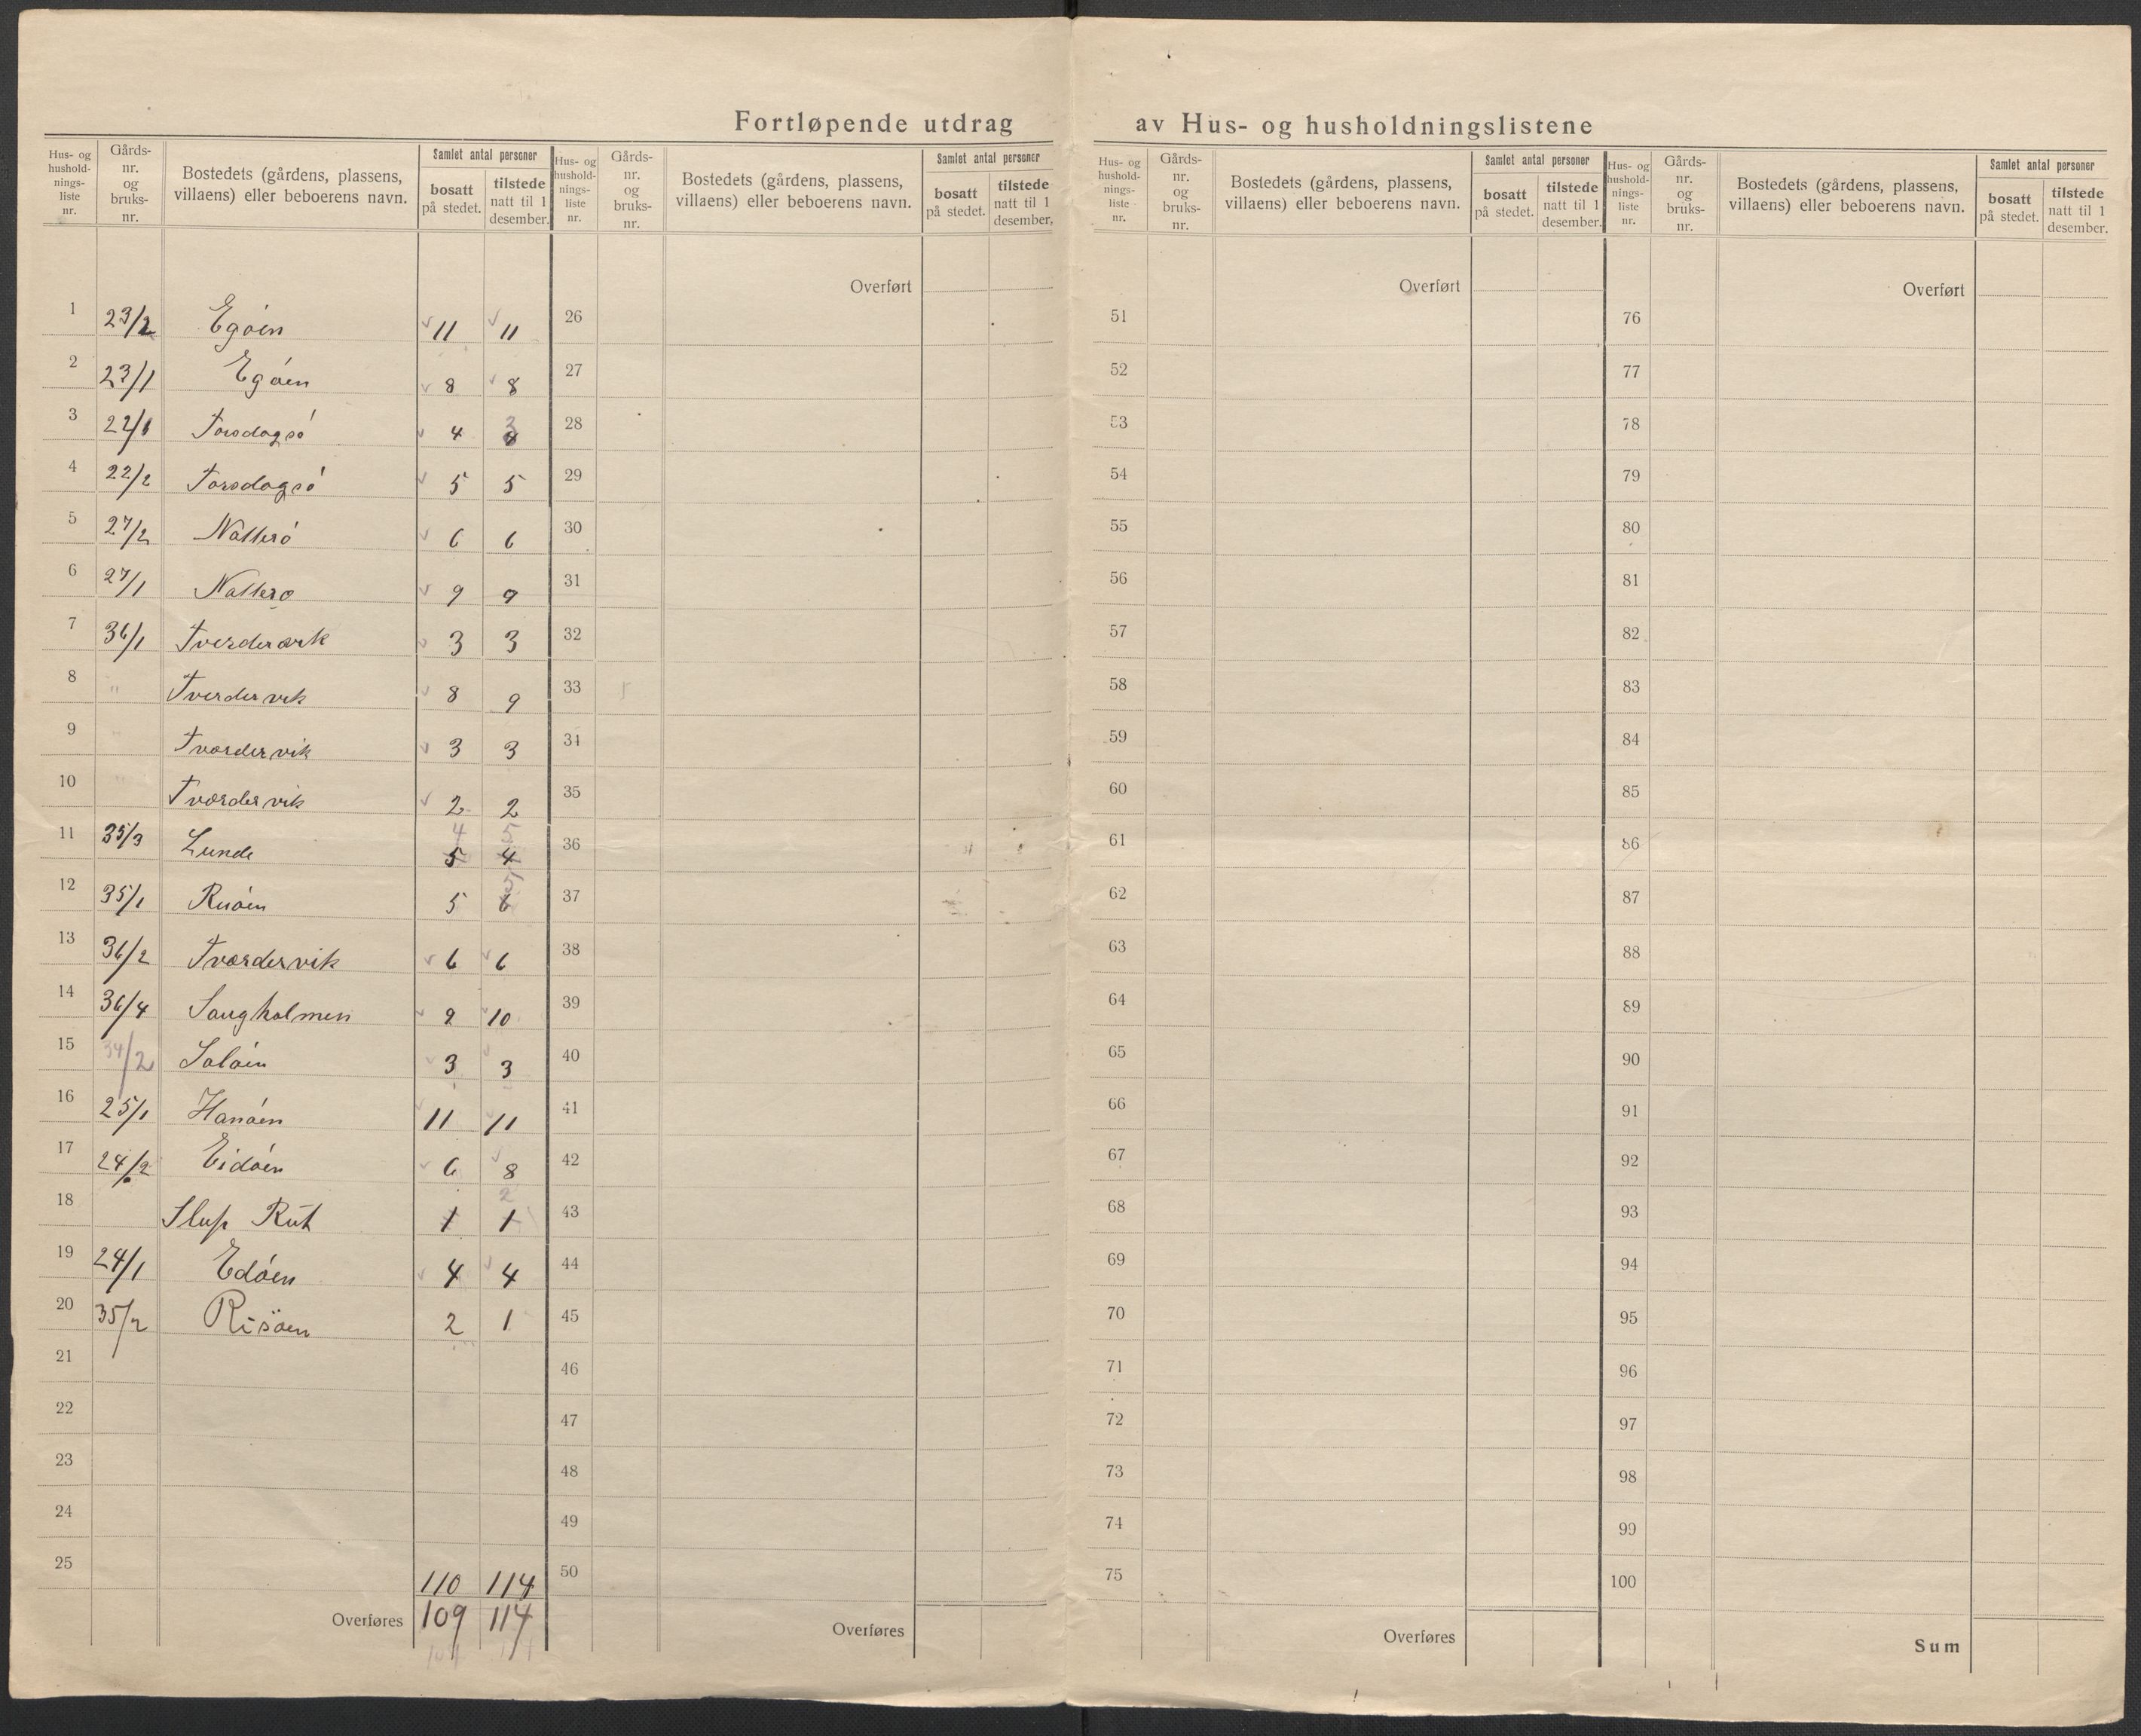 Fortløpende utdrag av Hus- og husholdningslistene
Hus- og hushold-nings-liste nr. Gårds-nr. og bruks-nr. Bostedets (gårdens, plassens, villaens) eller beboerens navn. Samlet antal personer bosatt på stedet. tilstede natt til 1 desember.
Hus- og hushold-nings-liste nr. Gårds-nr. og bruks-nr. Bostedets (gårdens, plassens, villaens) eller beboerens navn. Samlet antal personer bosatt på stedet. tilstede natt til 1 desember.
Hus- og hushold-nings-liste nr. Gårds-nr. og bruks-nr. Bostedets (gårdens, plassens, villaens) eller beboerens navn. Samlet antal personer bosatt på stedet. tilstede natt til 1 desember.
Hus- og hushold-nings-liste nr. Gårds-nr. og bruks-nr. Bostedets (gårdens, plassens, villaens) eller beboerens navn. Samlet antal personer bosatt på stedet. tilstede natt til 1 desember.
1 23/2 Egóen 11 11
2 23/1 Egóen 8 8
3 22/1 Torsdagsó 4 3
4 22/2 Torsdagsó 5 5
5 27/2 Natteró 6 6
6 27/1 Nattero 9 9
7 36/1 3 3
8 " Tverdervik 8 9
9 " Tværdervik 3 3
10 " Tværdervik 2 2
11 35/3 Lunde 4 5 5 4
12 35/1 5 5 6
13 36/2 Tværdervik 6 6
14 36/4 Saugholmen 9 10
15 34/2 Salóen 3 3
16 25/1 Hanóen 11 11
17 24/2 Eidóen 6 8
18 Slup Rut 1 2 1
19 24/1 Edóen 4 4
20 35/2 Risöen 2 1
21
22
23
24
25 110 114
Overføres 109 114
Overført
26
27
28
29
30
31
32
33
34
35
36
37
38
39
40
41
42
43
44
45
46
47
48
49
50
Overføres
Overført
51
52
53
54
55
56
57
58
59
60
61
62
63
64
65
66
67
68
69
70
71
72
73
74
75
Overføres
Overført
76
77
78
79
80
81
82
83
84
85
86
87
88
89
90
91
92
93
94
95
96
97
98
99
100
Sum